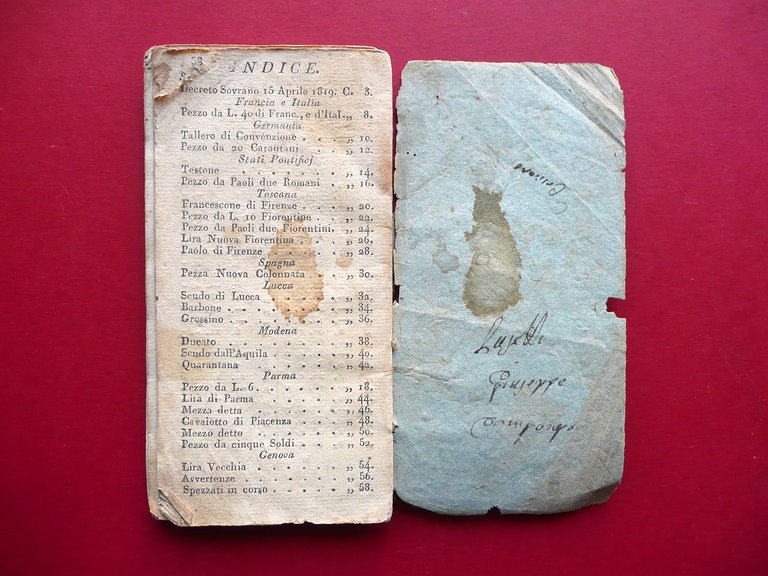 58
INDICE.
Decreto Sovrano 15 Aprile 1819. C. 3.
Francia e Italia
Pezzo da L. 40 di Franc., e d'Ital.,, 8.
Germania
Tallero di Convenzione . . . ,, 10.
Pezzo da 20 Carantani . . . ,, 12.
Stati Pontificj
Testone . . . . . . . . ,, 14.
Pezzo da Paoli due Romani . . ,, 16.
Toscana
Francescone di Firenze . . . ,, 20.
Pezzo da L. 10 Fiorentine . . ,, 22.
Pezzo da Paoli due Fiorentini. ,, 24.
Lira Nuova Fiorentina . . . ,, 26.
Paolo di Firenze . . . . . ,, 28.
Spagna
Pezza Nuova Colonnata . . . ,, 30.
Lucca
Scudo di Lucca . . . . . ,, 32.
Barbone . . . . . . . . ,, 34.
Grossino . . . . . . . . ,, 36.
Modena
Ducato . . . . . . . . ,, 38.
Scudo dall'Aquila . . . . . ,, 40.
Quarantana . . . . . . . ,, 42.
Parma
Pezzo da L. 6. . . . . . . ,, 18.
Lira di Parma . . . . . . ,, 44.
Mezza detta . . . . . . . ,, 46.
Cavaiotto di Piacenza . . . . ,, 48.
Mezzo detto . . . . . . . ,, 50.
Pezzo da cinque Soldi . . . . ,, 52.
Genova
Lira Vecchia . . . . . . ,, 54.
Avvertenze . . . . . . . ,, 56.
Spezzati in corso . . . . . ,, 58.
Giuseppe